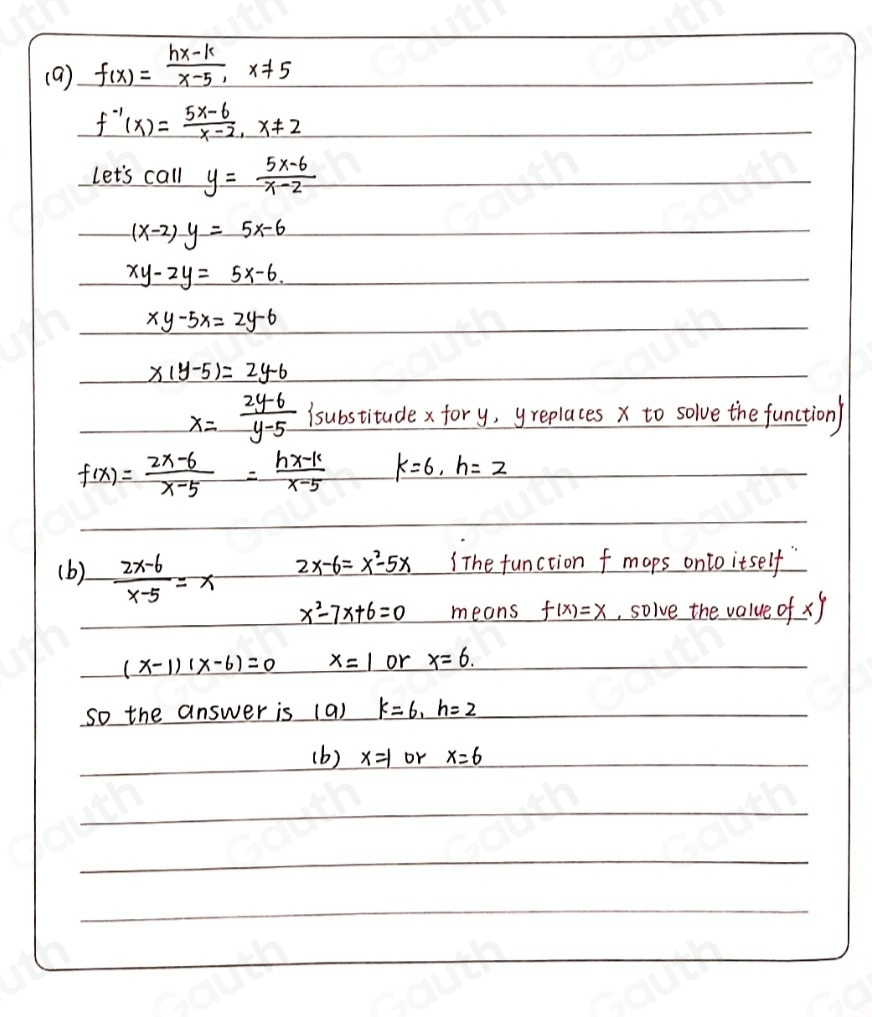 (a) f(x) = hx-k / x-5, x≠5
f⁻¹(x) = 5x-6 / x-2, x≠2
Let's call y = 5x-6 / x-2
(x-2) y = 5x-6
xy-2y = 5x-6.
xy-5x = 2y-6
x(y-5) = 2y-6
x = 2y-6 / y-5 {substitude x for y, y replaces x to solve the function}
f(x) = 2x-6 / x-5 = hx-k / x-5 k=6, h=2
(b) 2x-6 / x-5 = x 2x-6 = x²-5x {The function f maps onto itself"
x²-7x+6=0 means f(x)=x, solve the value of x}
(x-1)(x-6)=0 x=1 or x=6.
so the answer is (a) k=6, h=2
(b) x=1 or x=6
Gauth